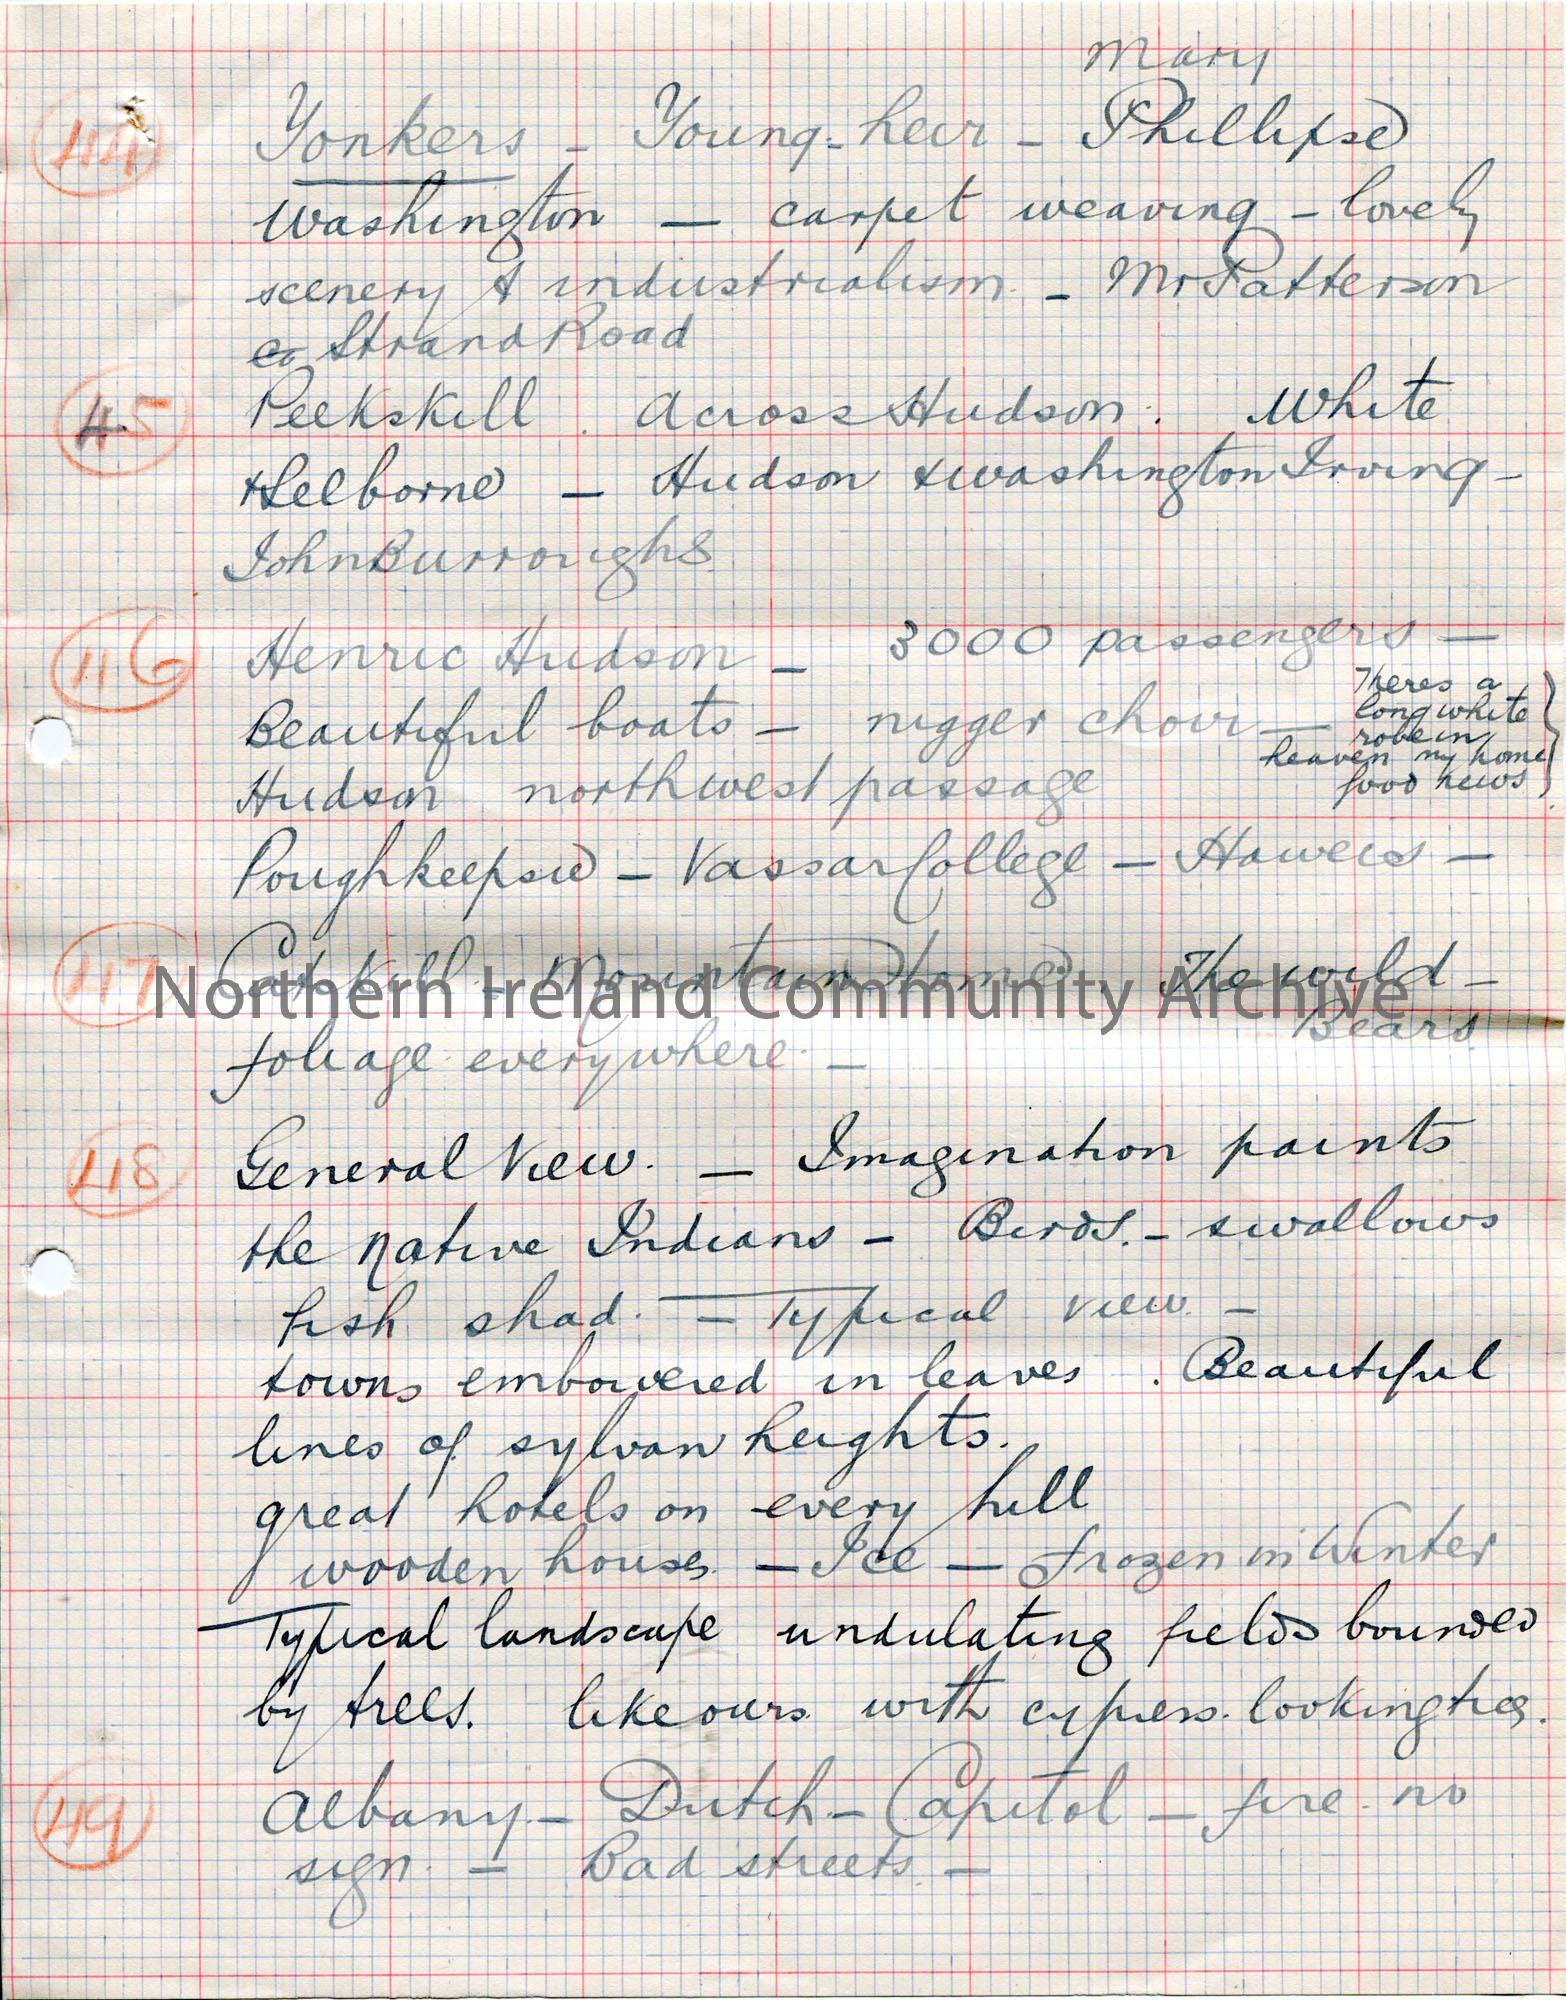 Mary
44 Yonkers - Young-heir - Phillipse
Washington — carpet weaving - lovely
scenery & industrialism - Mr Patterson
Strand Road
45 Peekskill . Across Hudson. White
Selborne — Hudson & Washington Irving -
John Burroughs
46 Henric Hudson - 3000 passengers —
Beautiful boats — nigger choir —
Theres a
long white
robe in
heaven my home
good news
Hudson northwest passage
Poughkeepsie - Vassar College —
47 Catskill - Mountain Home The wild -
Bears
foliage everywhere -
Northern Ireland Community Archive
48 General View. — Imagination paints
the native Indians - Birds. - swallows
fish shad. - Typical view -
towns embowered in leaves . Beautiful
lines of sylvan heights.
great hotels on every hill
wooden houses - Ice — frozen in Winter
Typical landscape undulating fields bounded
by trees. like ours with cypress. looking trees.
49 Albany - Dutch - Capitol - fire. no
sign. - Bad streets -